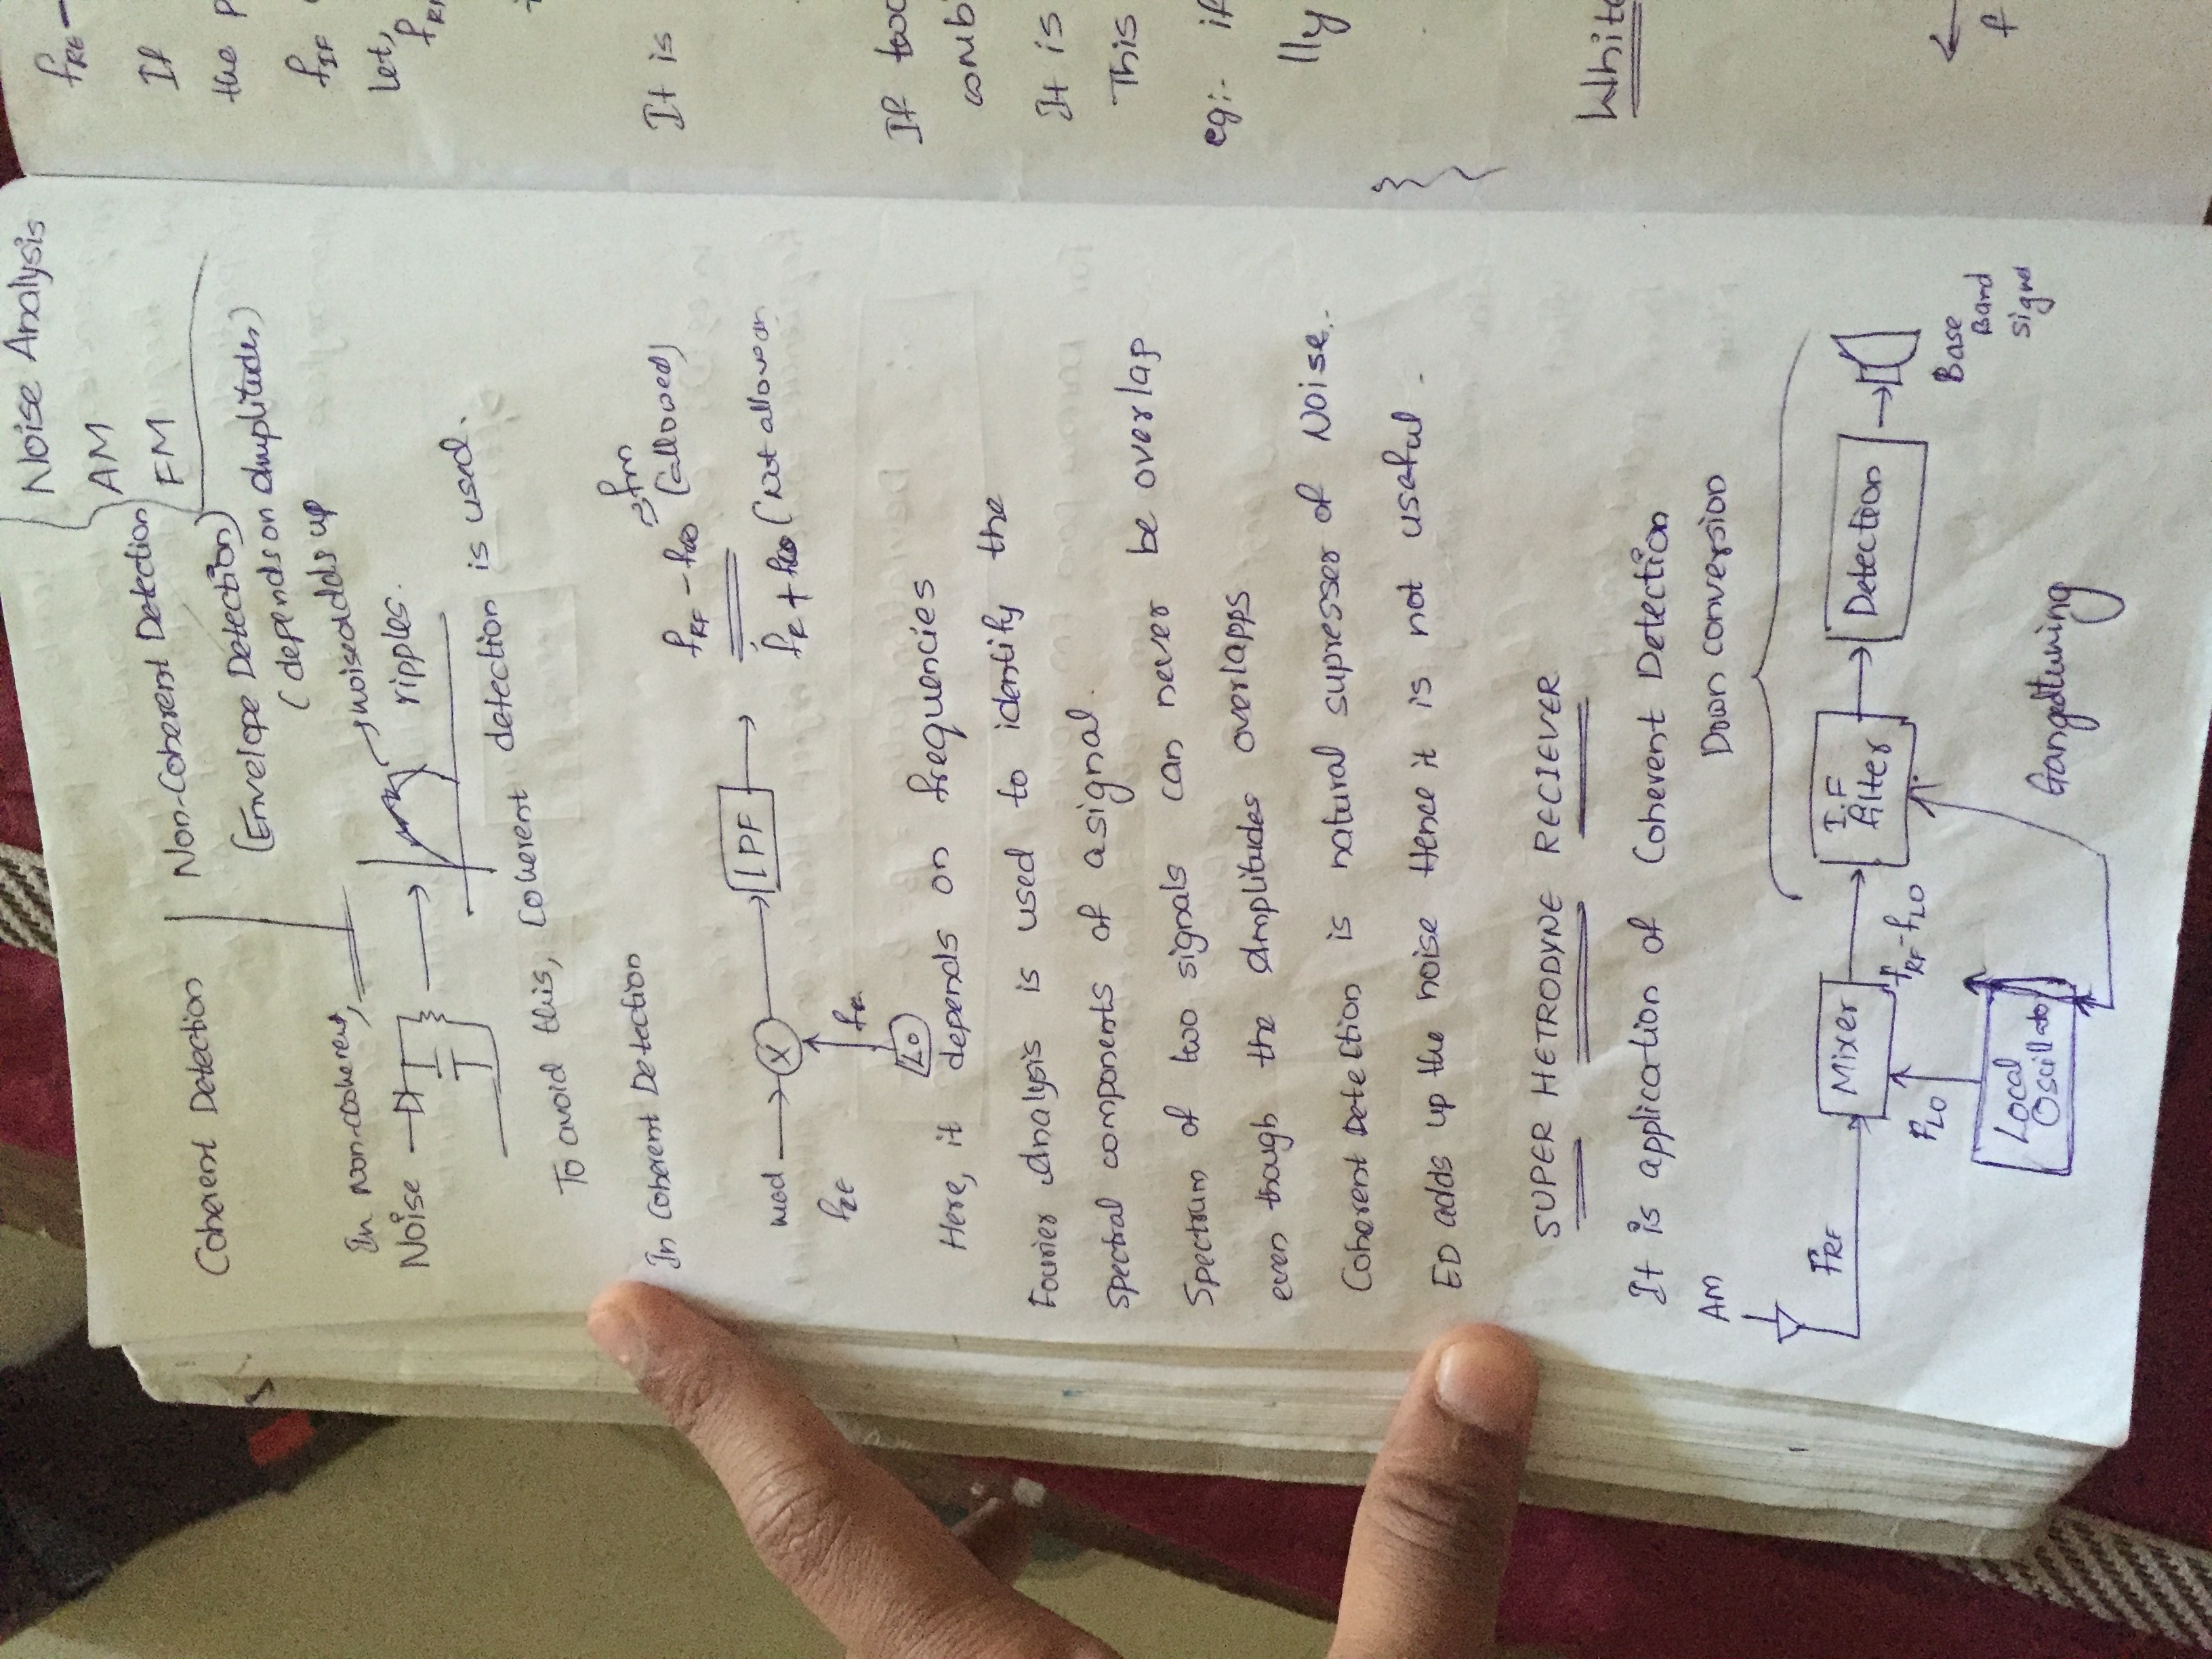 Noise Analysis
AM
FM
Coherent Detection
Non-Coherent Detection
(Envelope Detection)
(depends on Amplitudes)
In Non-Coherent,
Noise
noise adds up
ripples.
To avoid this, Coherent detection is used.
In Coherent Detection
fm
fRF - fLO (allowed)
mod
X
LPF
fR + fLO (Not allowed
fRF
LO
Here, it depends on frequencies
Fourier Analysis is used to identify the
spectral components of a signal.
Spectrum of two signals can never be overlap
even though the Amplitudes overlapps
Coherent Detection is natural supresser of Noise.
ED adds up the noise Hence it is not useful.
SUPER HETRODYNE RECIEVER
It is application of Coherent Detection
AM
Down conversion
FRF
Mixer
I.F
filter
Detection
fRF - fLO
FLO
Base
Band
Signal
Local
Oscillator
Gangedtuning
fRF -
If
the p
fIF
let,
It is
If two
combi
It is
This
eg:- if
lly
White
f